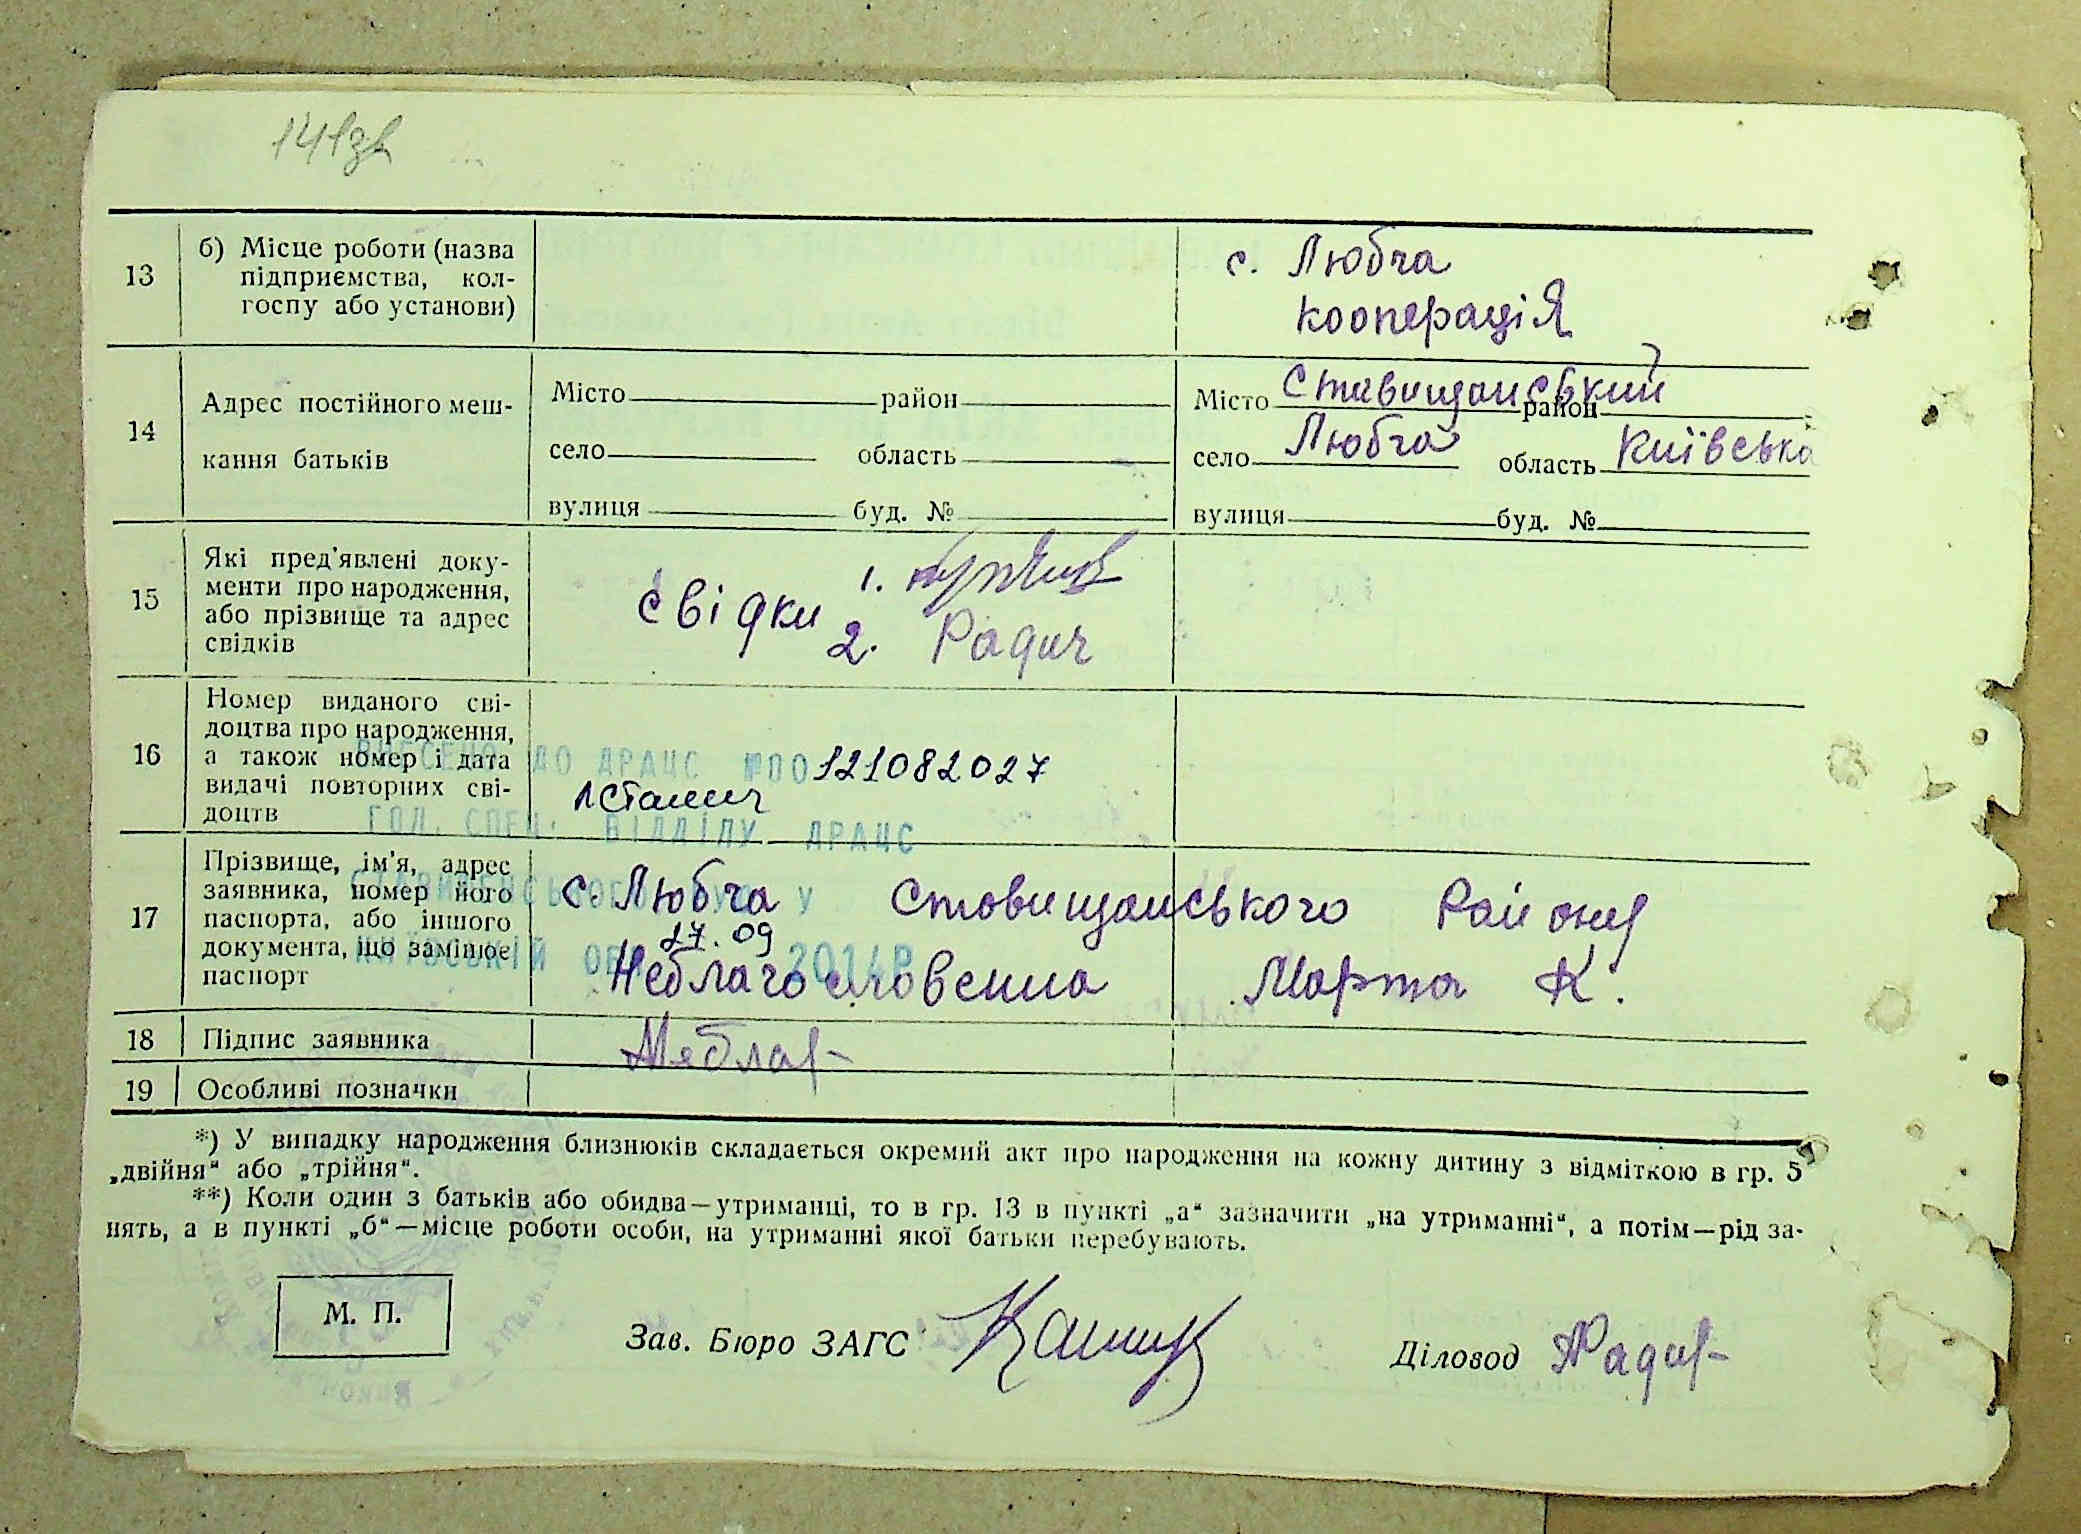 141зв
13
б) Місце роботи (назва
підприємства, кол-
госпу або установи)
с. Любча
кооперація
14
Адрес постійного меш-
кання батьків
Місто район
село область
вулиця буд. №
Місто Ставищанський район
село Любча область Київська
вулиця буд. №
15
Які пред'явлені доку-
менти про народження,
або прізвище та адрес
свідків
Свідки 1.
2. Радич
16
Номер виданого сві-
доцтва про народження,
а також номер і дата
видачі повторних сві-
доцтв
ВНЕСЕНО ДО ДРАЦС №00121082027
ГОЛ. СПЕЦ. ВІДДІЛУ ДРАЦС
17
Прізвище, ім'я, адрес
заявника, номер його
паспорта, або іншого
документа, що замінює
паспорт
с. Любча Ставищанського Району
27.09 2014Р
Неблагословенна Марта К.
18
Підпис заявника
Няблаг-
19
Особливі позначки
*) У випадку народження близнюків складається окремий акт про народження на кожну дитину з відміткою в гр. 5
„двійня“ або „трійня“.
**) Коли один з батьків або обидва—утриманці, то в гр. 13 в пункті „а“ зазначити „на утриманні“, а потім—рід за-
нять, а в пункті „б“—місце роботи особи, на утриманні якої батьки перебувають.
М. П.
Зав. Бюро ЗАГС
Діловод Радич